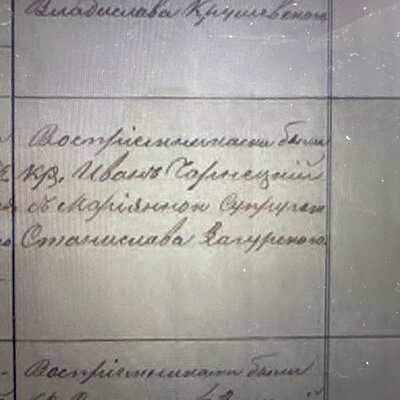 Владислава Крушевскою
Воспріемниками были
кр. Иванъ Чарнецкій
съ Маріянною Супругою
Станислава Загурскою.
Воспріемниками были